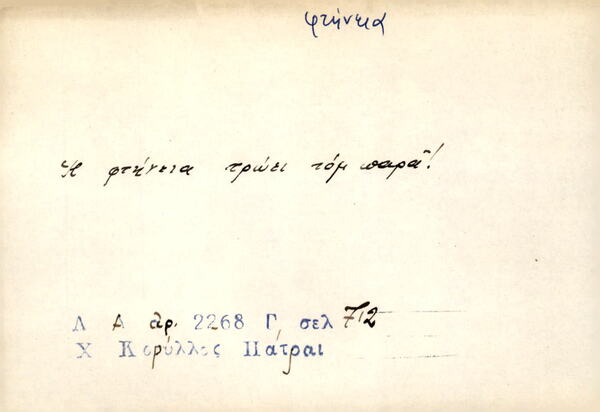 φτήνεια
Η φτήνεια τρώει τόμ παρᾶ!
Λ Α ἀρ. 2268 Γ, σελ 712
Χ Κορύλλος Πάτραι